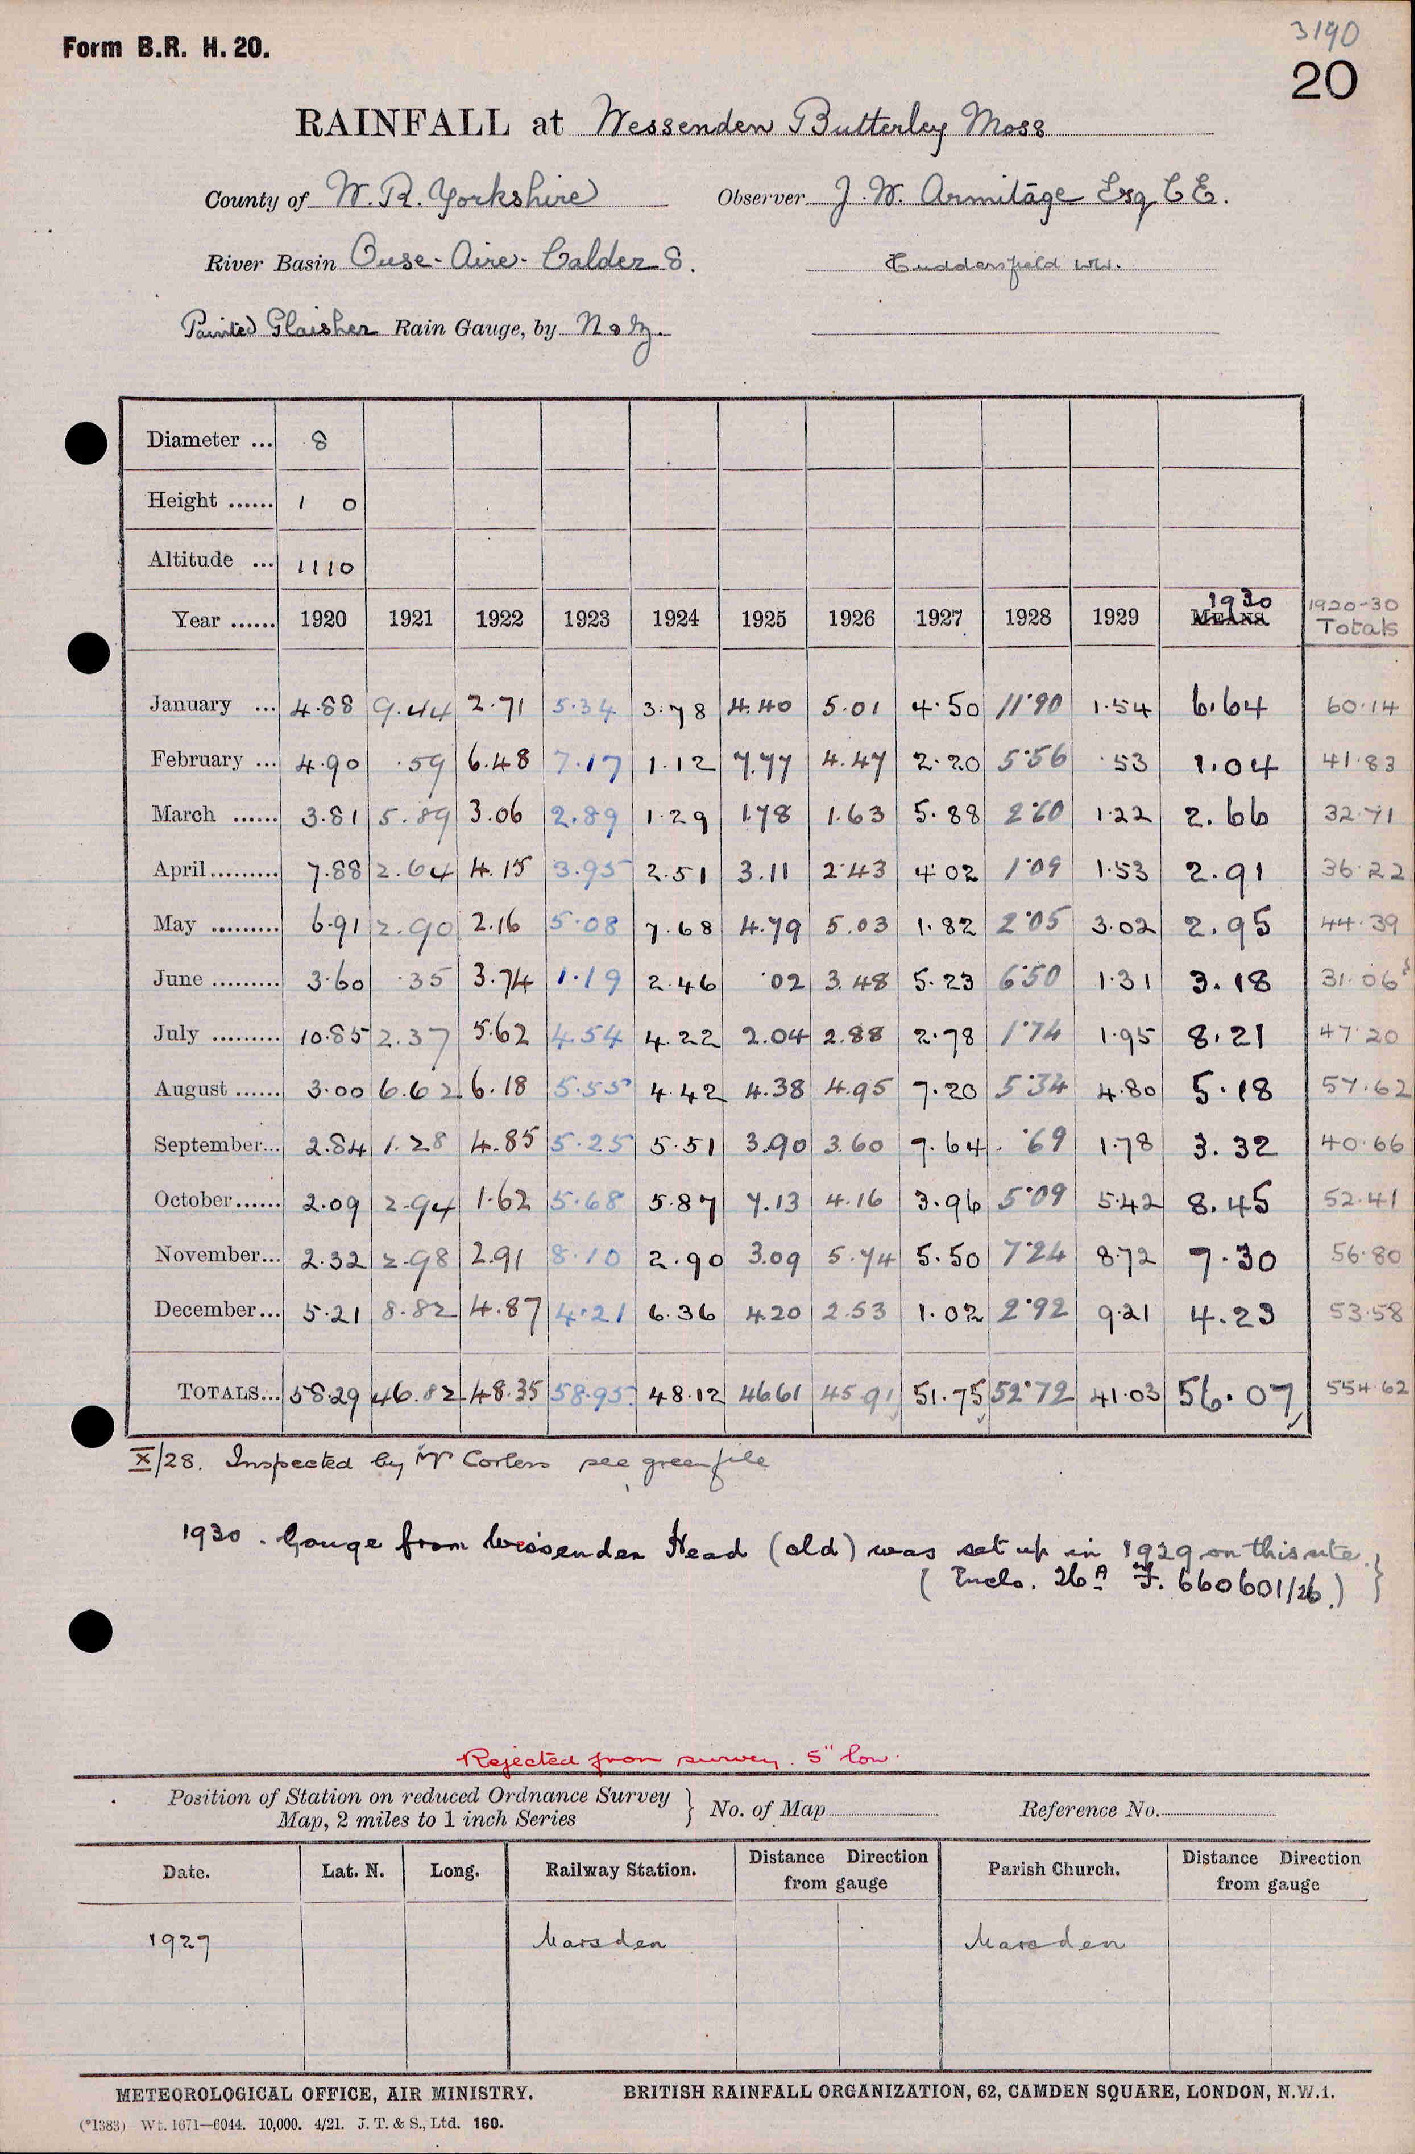 3190
Form B.R. H. 20.
20
RAINFALL at Wessenden Butterley Moss
County of W. R. Yorkshire Observer J. W. Armitage Esq C E.
River Basin Ouse - Aire - Calder S. Huddersfield WW.
Painted Glaisher Rain Gauge, by N & Z.
Diameter ... 8
Height ...... 1 0
Altitude ... 1110
1930
Year ...... 1920 1921 1922 1923 1924 1925 1926 1927 1928 1929 MEANS 1920-30 Totals
January ... 4.88 9.44 2.71 5.34 3.78 4.40 5.01 4.50 11.90 1.54 6.64 60.14
February ... 4.90 .59 6.48 7.17 1.12 7.77 4.47 2.20 5.56 .53 1.04 41.83
March ...... 3.81 5.89 3.06 2.89 1.29 1.78 1.63 5.88 2.60 1.22 2.66 32.71
April ......... 7.88 2.64 4.15 3.95 2.51 3.11 2.43 4.02 1.09 1.53 2.91 36.22
May ......... 6.91 2.90 2.16 5.08 7.68 4.79 5.03 1.82 2.05 3.02 2.95 44.39
June ......... 3.60 .35 3.74 1.19 2.46 .02 3.48 5.23 6.50 1.31 3.18 31.06
July ......... 10.85 2.37 5.62 4.54 4.22 2.04 2.88 2.78 1.74 1.95 8.21 47.20
August ...... 3.00 6.62 6.18 5.55 4.42 4.38 4.95 7.20 5.34 4.80 5.18 57.62
September... 2.84 1.28 4.85 5.25 5.51 3.90 3.60 7.64 .69 1.78 3.32 40.66
October ...... 2.09 2.94 1.62 5.68 5.87 7.13 4.16 3.96 5.09 5.42 8.45 52.41
November... 2.32 2.98 2.91 8.10 2.90 3.09 5.74 5.50 7.24 8.72 7.30 56.80
December... 5.21 8.82 4.87 4.21 6.36 4.20 2.53 1.02 2.92 9.21 4.23 53.58
TOTALS... 58.29 46.82 48.35 58.95 48.12 46.61 45.91 51.75 52.72 41.03 56.07 554.62
X/28. Inspected by Mr Corless see green file
1930. Gauge from Wessenden Head (old) was set up in 1929 on this site.
(Enclo. 26A F. 660601/26.)
Rejected from survey. 5" low.
Position of Station on reduced Ordnance Survey
Map, 2 miles to 1 inch Series } No. of Map Reference No.
Date. Lat. N. Long. Railway Station. Distance Direction from gauge Parish Church. Distance Direction from gauge
1927 Marsden Marsden
METEOROLOGICAL OFFICE, AIR MINISTRY. BRITISH RAINFALL ORGANIZATION, 62, CAMDEN SQUARE, LONDON, N.W.1.
(*1383) Wt. 1671—6044. 10,000. 4/21. J. T. & S., Ltd. 160.